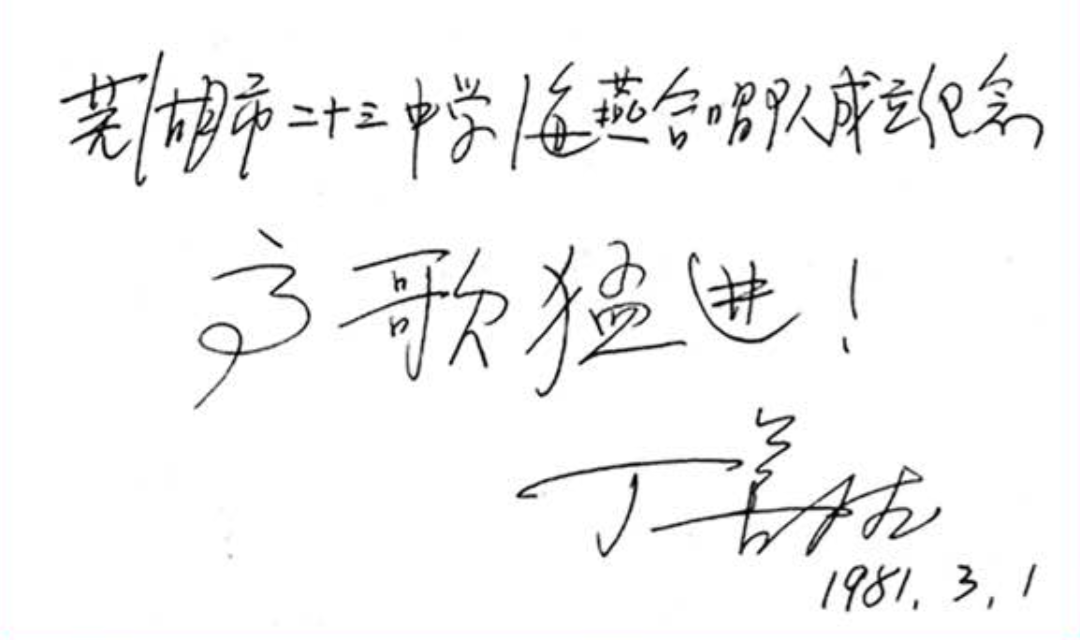 芜湖市二十三中学海燕合唱队成立纪念
高歌猛进!
丁善德
1981.3.1